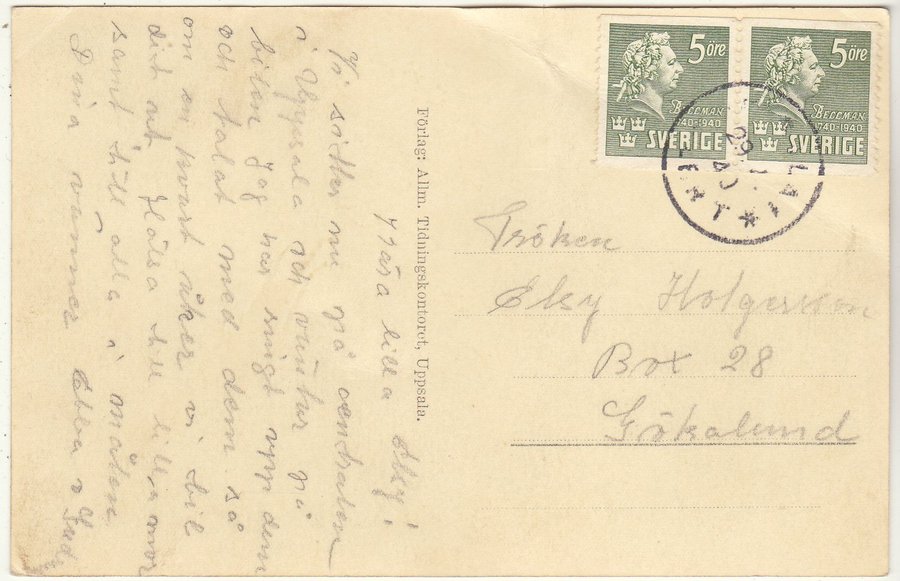 Kära lilla Elsy!
Vi sitter nu på centralen
i Uppsala och väntar på
bilen Jag har ringt upp dem
och talat med dem så
om en kvart åker vi bil
dit ut Hälsa till lilla mor
samt till alla i
Dina vänner Ebba o
Förlag: Allm. Tidningskontoret, Uppsala.
5 öre
BELLMAN
1740-1940
SVERIGE
5 öre
BELLMAN
1740-1940
SVERIGE
29
40
Fröken
Elsy Holgersson
Box 28
Gökalund